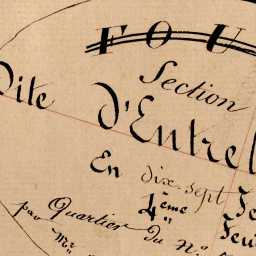 FOU
Section
Dite d'Entrel
En dix-sept Fe
4ème Feui
par Quartier du No
Mr